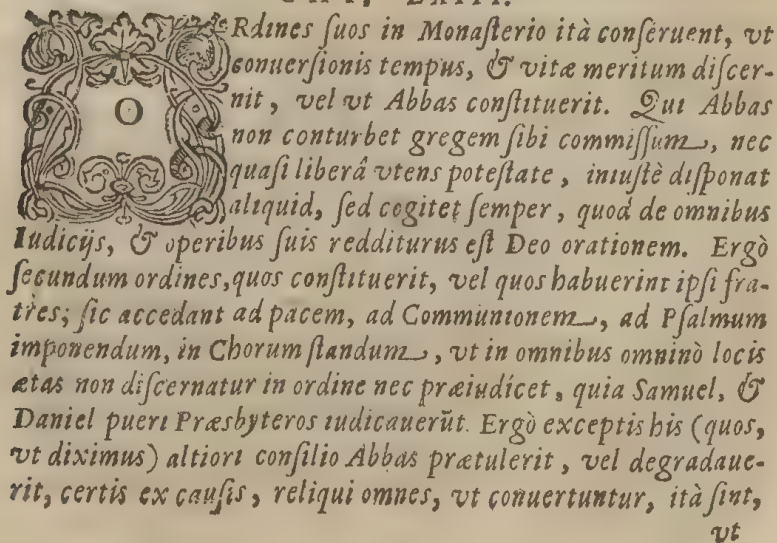 CAP. LXIII.
ORdines ſuos in Monaſterio ità conſeruent, vt
conuerſionis tempus, & vitæ meritum diſcer-
nit, vel vt Abbas conſtituerit. Qui Abbas
non conturbet gregem ſibi commiſſum, nec
quaſi liberâ vtens poteſtate, iniuſtè diſponat
aliquid, ſed cogitet ſemper, quod de omnibus
Iudicijs, & operibus ſuis redditurus eſt Deo orationem. Ergò
ſecundum ordines, quos conſtituerit, vel quos habuerint ipſi fra-
tres; ſic accedant ad pacem, ad Communionem, ad Pſalmum
imponendum, in Chorum ſtandum, vt in omnibus omninò locis
ætas non diſcernatur in ordine nec præiudicet, quia Samuel, &
Daniel pueri Præsbyteros iudicauerũt. Ergò exceptis his (quos,
vt diximus) altiori conſilio Abbas prætulerit, vel degradaue-
rit, certis ex cauſis, reliqui omnes, vt conuertuntur, ità ſint,
vt